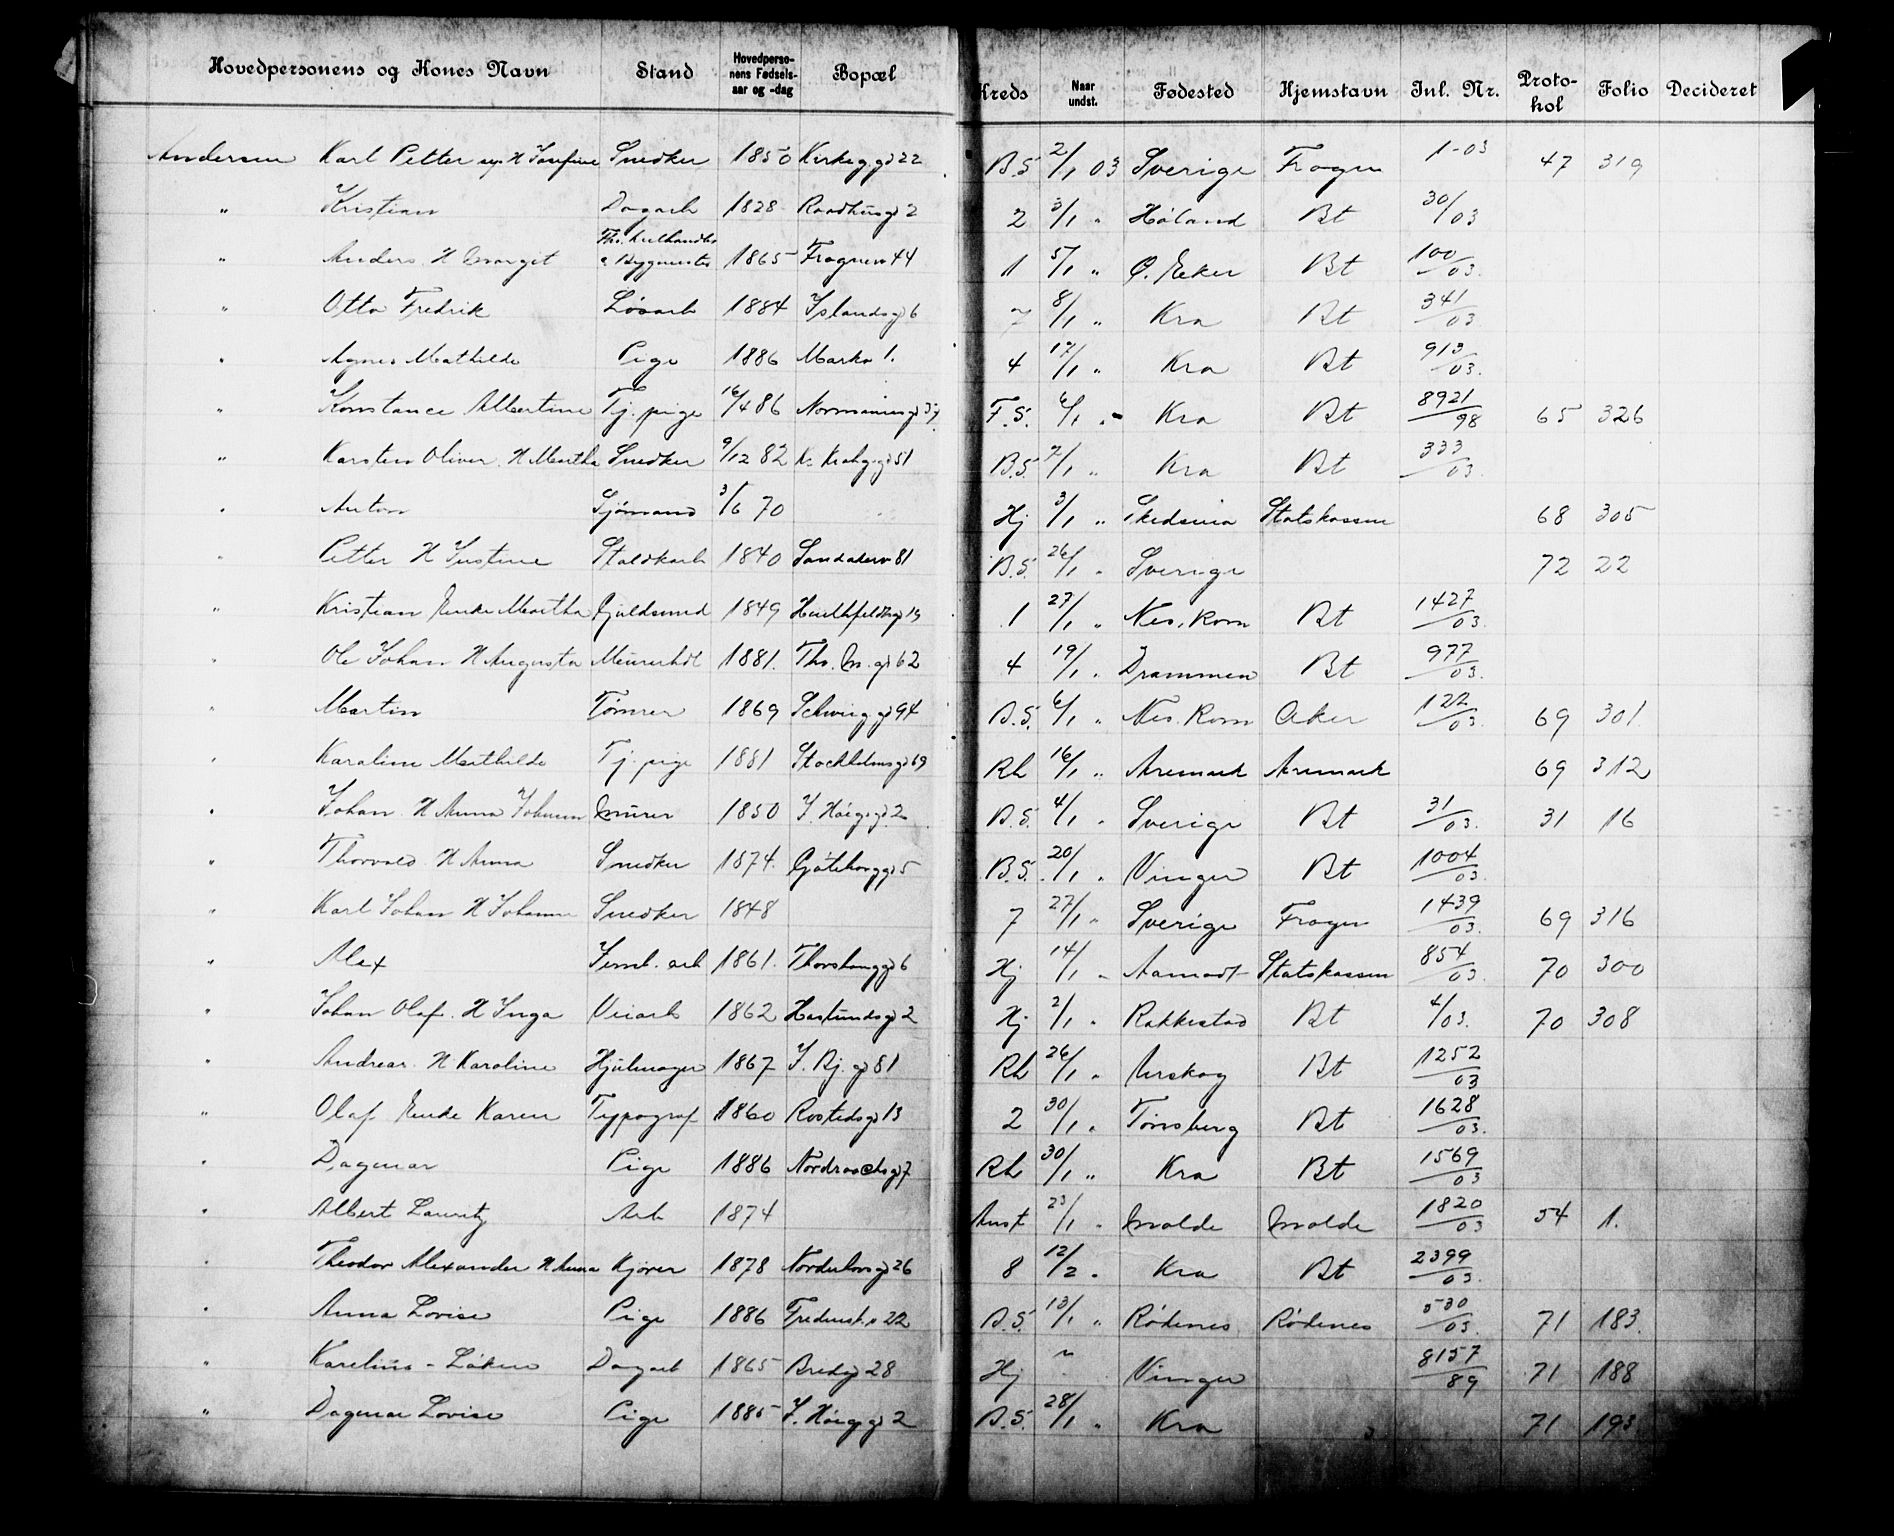 Hovedpersonens og Kones Navn Stand Hovedpersonens Fødselsaar og -dag Bopæl Kreds Naar undst. Fødested Hjemstavn Inl. Nr. Protokol Folio Decideret
Andersen Karl Petter H Josefine Snedker 1850 Kirkeg.gd 22 B.S. 2/1 03 Sverige Frogn 1-03 47 319
" Kristian Dagarb 1828 Raadhusgd 2 2 3/1 " Høland Bt 30/03
" Anders H Margit Bygmester 1865 Frognerv 44 1 5/1 " Ø. Eker Bt 100/03
" Otto Fredrik Løsarb 1884 Islandsgd 6 7 8/1 " Kra Bt 341/03
" Agnes Mathilde Pige 1886 Markv 1. 4 17/1 " Kra Bt 913/03
" Konstance Albertine Tj. pige 16/4 86 F.S. 6/1 " Kra Bt 8921/98 65 326
" Karsten Oliver H Martha Snedker 9/12 82 51 B.S. 7/1 " Kra Bt 333/03
" Anton Sjømand 3/6 70 Hj 3/1 " Skedsmo Statskassen 68 305
" Petter H Justine Staldkarl 1840 Sandakerv 81 B.S. 26/1 " Sverige 72 22
" Kristian Enke Martha Guldsmed 1849 1 27/1 " Nes, Rom Bt 1427/03
" Ole Johan H Augusta Murerhdt 1881. Th. M. gd 62 4 19/1 " Drammen Bt 977/03
" Martin Tømrer 1869 Schweig.gd 94 B.S. 6/1 " Nes, Rom Aker 122/03 69 301
" Karoline Mathilde Tj. pige 1881 Stockholmsgd 69 Rh 16/1 " Aremark Aremark 69 312
" Johan H Anna Johnsen Murer 1850 J. Høiegsgd 2 B.S. 4/1 " Sverige Bt 31/03 31 16
" Thorvald H Anna Snedker 1874. Gøteborggd 5 B.S. 20/1 " Vinger Bt 1004/03
" Karl Johan H Johanne Snedker 1848 7 27/1 " Sverige Frogn 1439/03 69 316
" Alex Jernb. arb 1861. Thorshauggd 6 Hj 14/1 " Aamodt Statskassen 854/03 70 300
" Johan Olaf H Inga Veiarb 1862 2 Hj 2/1 " Rakkestad Bt 4/03. 70 308
" Andreas H Karoline Hjulmager 1867 J. Bj. gd 81 Rh 26/1 " Urskog Bt 1252/03
" Olaf Enke Karen Typograf 1860 Rostedsgd 13 2 30/1 " Tønsberg Bt 1628/03
" Dagmar Pige 1886 7 Rh 30/1 " Kra Bt 1569/03
" Albert Lauritz Arb 1874 Anst 23/1 " Molde Molde 1820/03 54 1.
" Theodor Alexander H Anna Kjører 1878 Norderhovsgd 26 8 12/2 " Kra Bt 2399/03
" Anna Lovise Pige 1886 22 B.S. 13/1 " Rødenes Rødenes 530/03 71 183
" Karelius Løken Dagarb 1865 Bredgd 28 Hj " Vinger 8157/89 71 188
" Dagmar Lovise Pige 1885 J. Høieggd 2 B.S. 28/1 " Kra 71 193